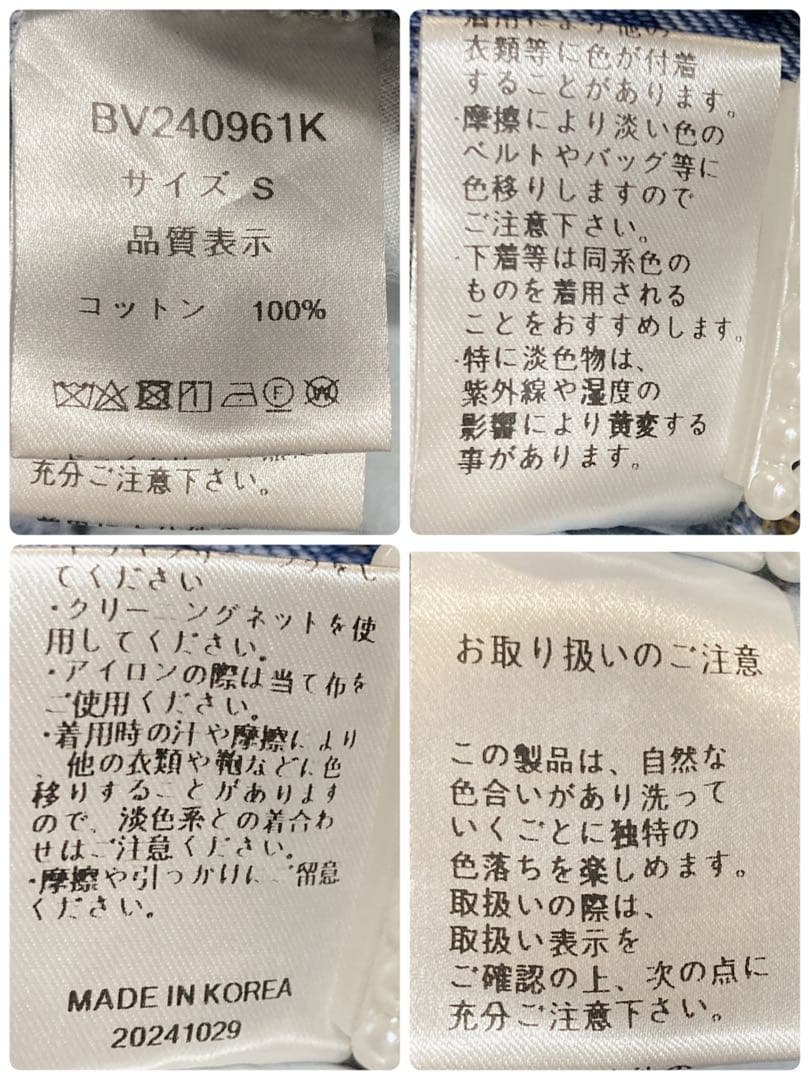 BV240961K
サイズ S
品質表示
コットン 100%
F
W
充分ご注意下さい。
着用により他の
衣類等に色が付着
することがあります。
・摩擦により淡い色の
ベルトやバッグ等に
色移りしますので
ご注意下さい。
・下着等は同系色の
ものを着用される
ことをおすすめします。
・特に淡色物は、
紫外線や湿度の
影響により黄変する
事があります。
てください
・クリーニングネットを使
用してください。
・アイロンの際は当て布を
ご使用ください。
・着用時の汁や摩擦により
、他の衣類や鞄などに色
移りすることがあります
ので、淡色系との着合わ
せはご注意ください。
・摩擦や引っかけにご留意
ください。
MADE IN KOREA
20241029
お取り扱いのご注意
この製品は、自然な
色合いがあり洗って
いくごとに独特の
色落ちを楽しめます。
取扱いの際は、
取扱い表示を
ご確認の上、次の点に
充分ご注意下さい。